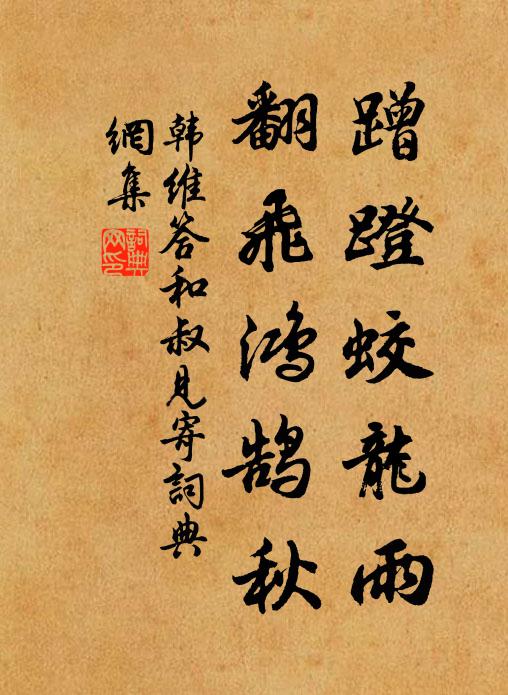 蹭蹬蛟龍雨
翻飛鴻鹄秋
韩維答和叔見寄詞典
網集
詞典
网印